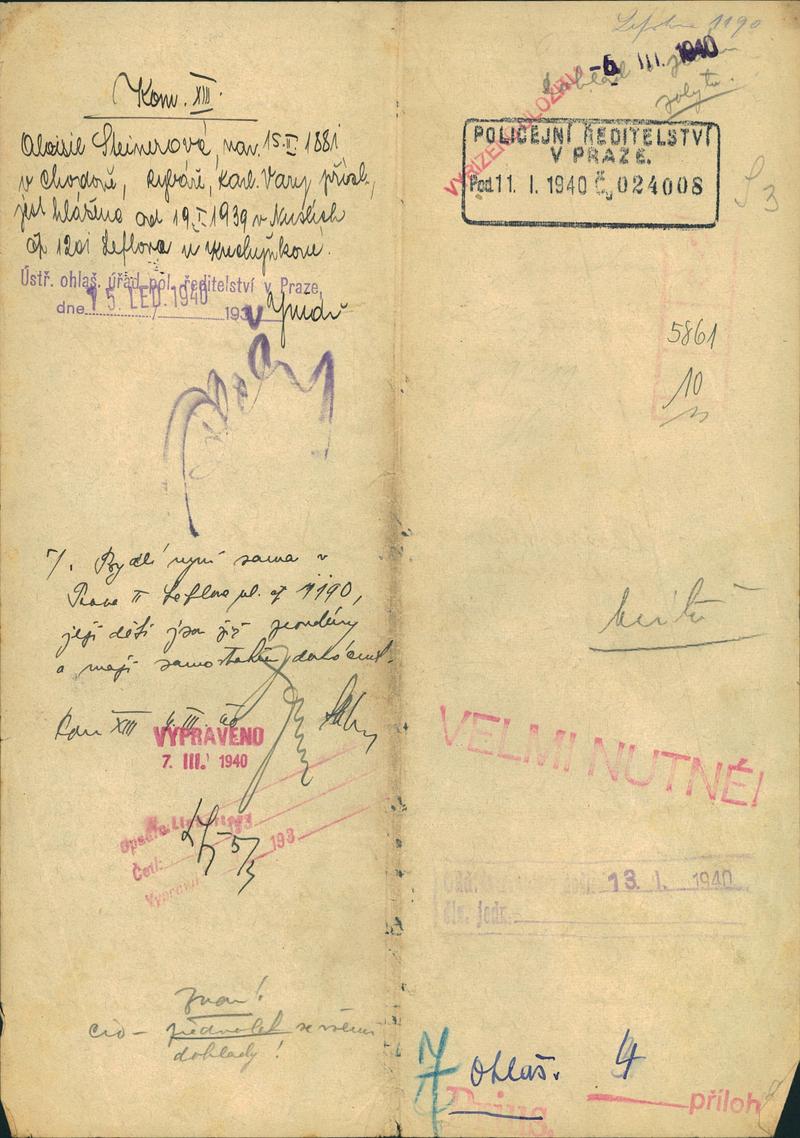 Kom. XIII.
Aloisie Steinerová, nar. 15.II 1881
v Chodově, Rybáře, Karl. Vary přísl.,
jest hlášena od 19.I.1939 v Nuslích
čp 1201 Leflova u Kuchyňkové.
Ústř. ohlaš. úřad pol. ředitelství v Praze,
dne 15. LED. 1940 193
7/. Bydlí nyní sama v
Praze II Leflova ul. čp 1190,
její děti jsou již
a mají samostatné
Kom XIII 4.III. 40
VYPRAVENO
7. III. 1940
Opsáno
193
Četl:
193
Vypraveno
5/3
předvolat se všemi
doklady!
1190
-6. III. 1940
VYŘÍZENO
POLICEJNÍ ŘEDITELSTVÍ
V PRAZE.
Pod 11. I. 1940 Č. 024008
S 3
5861
10
VELMI NUTNÉ!
13. I. 1940
čís. jedn.
7 Ohlaš. 4
Prius.
příloh